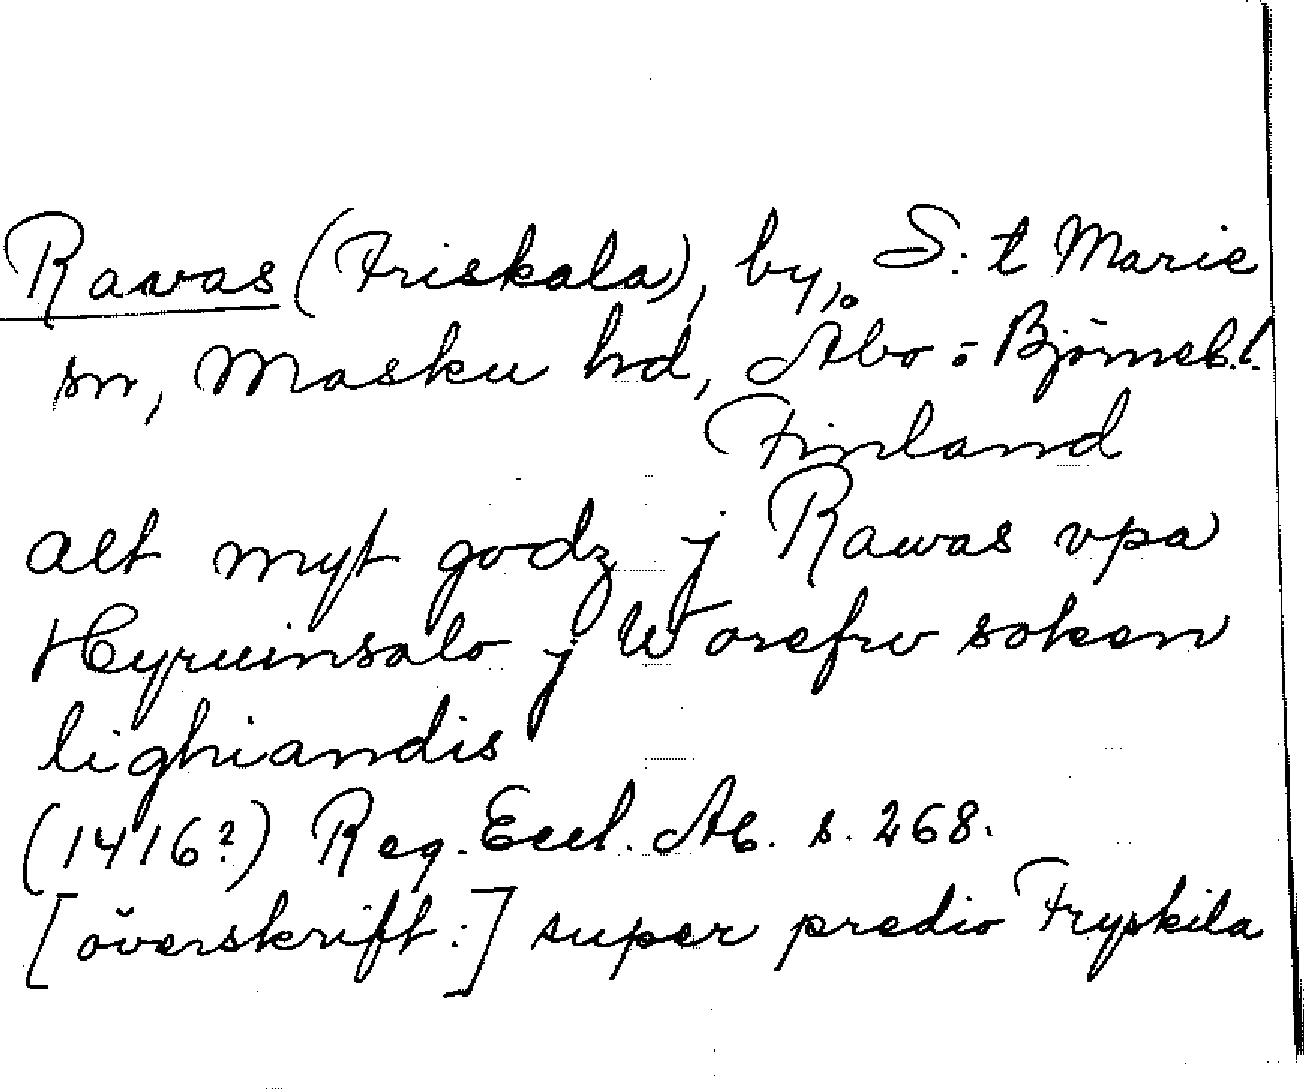 Rawas (Friskala), by, S:t Marie
sn, Masku hd, Åbo o Björneb.l.
Finland
alt myt godz j Rawas vpa
Hyruinsalo j Worefrv soken
lighiandis
(1416?) Reg. Eccl. Ab. s. 268.
[överskrift:] super predio Fryskila